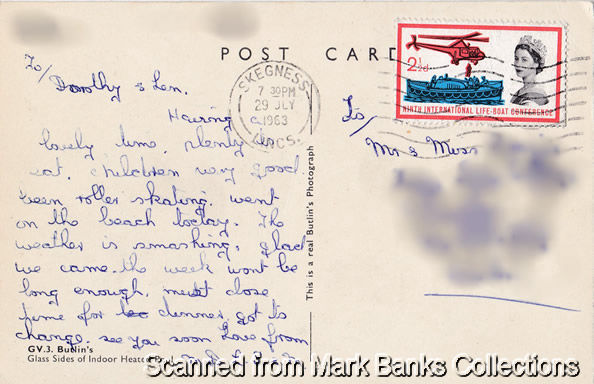 POST CARD
To/
Dorothy & Len.
Having
lovely time, plenty to
eat, children very good
been roller skating, went
on the beach today. The
weather is smashing, glad
we came. the week wont be
long enough. must close
time for dinner, got to
change. see you soon Love from
GV.3. Butlin's
Glass Sides of Indoor Heated
This is a real Butlin's Photograph
SKEGNESS
7 30PM
29 JLY
1963
LINCS.
2½d
NINTH INTERNATIONAL LIFE-BOAT CONFERENCE
To/
Mr & Mrs
Scanned from Mark Banks Collections